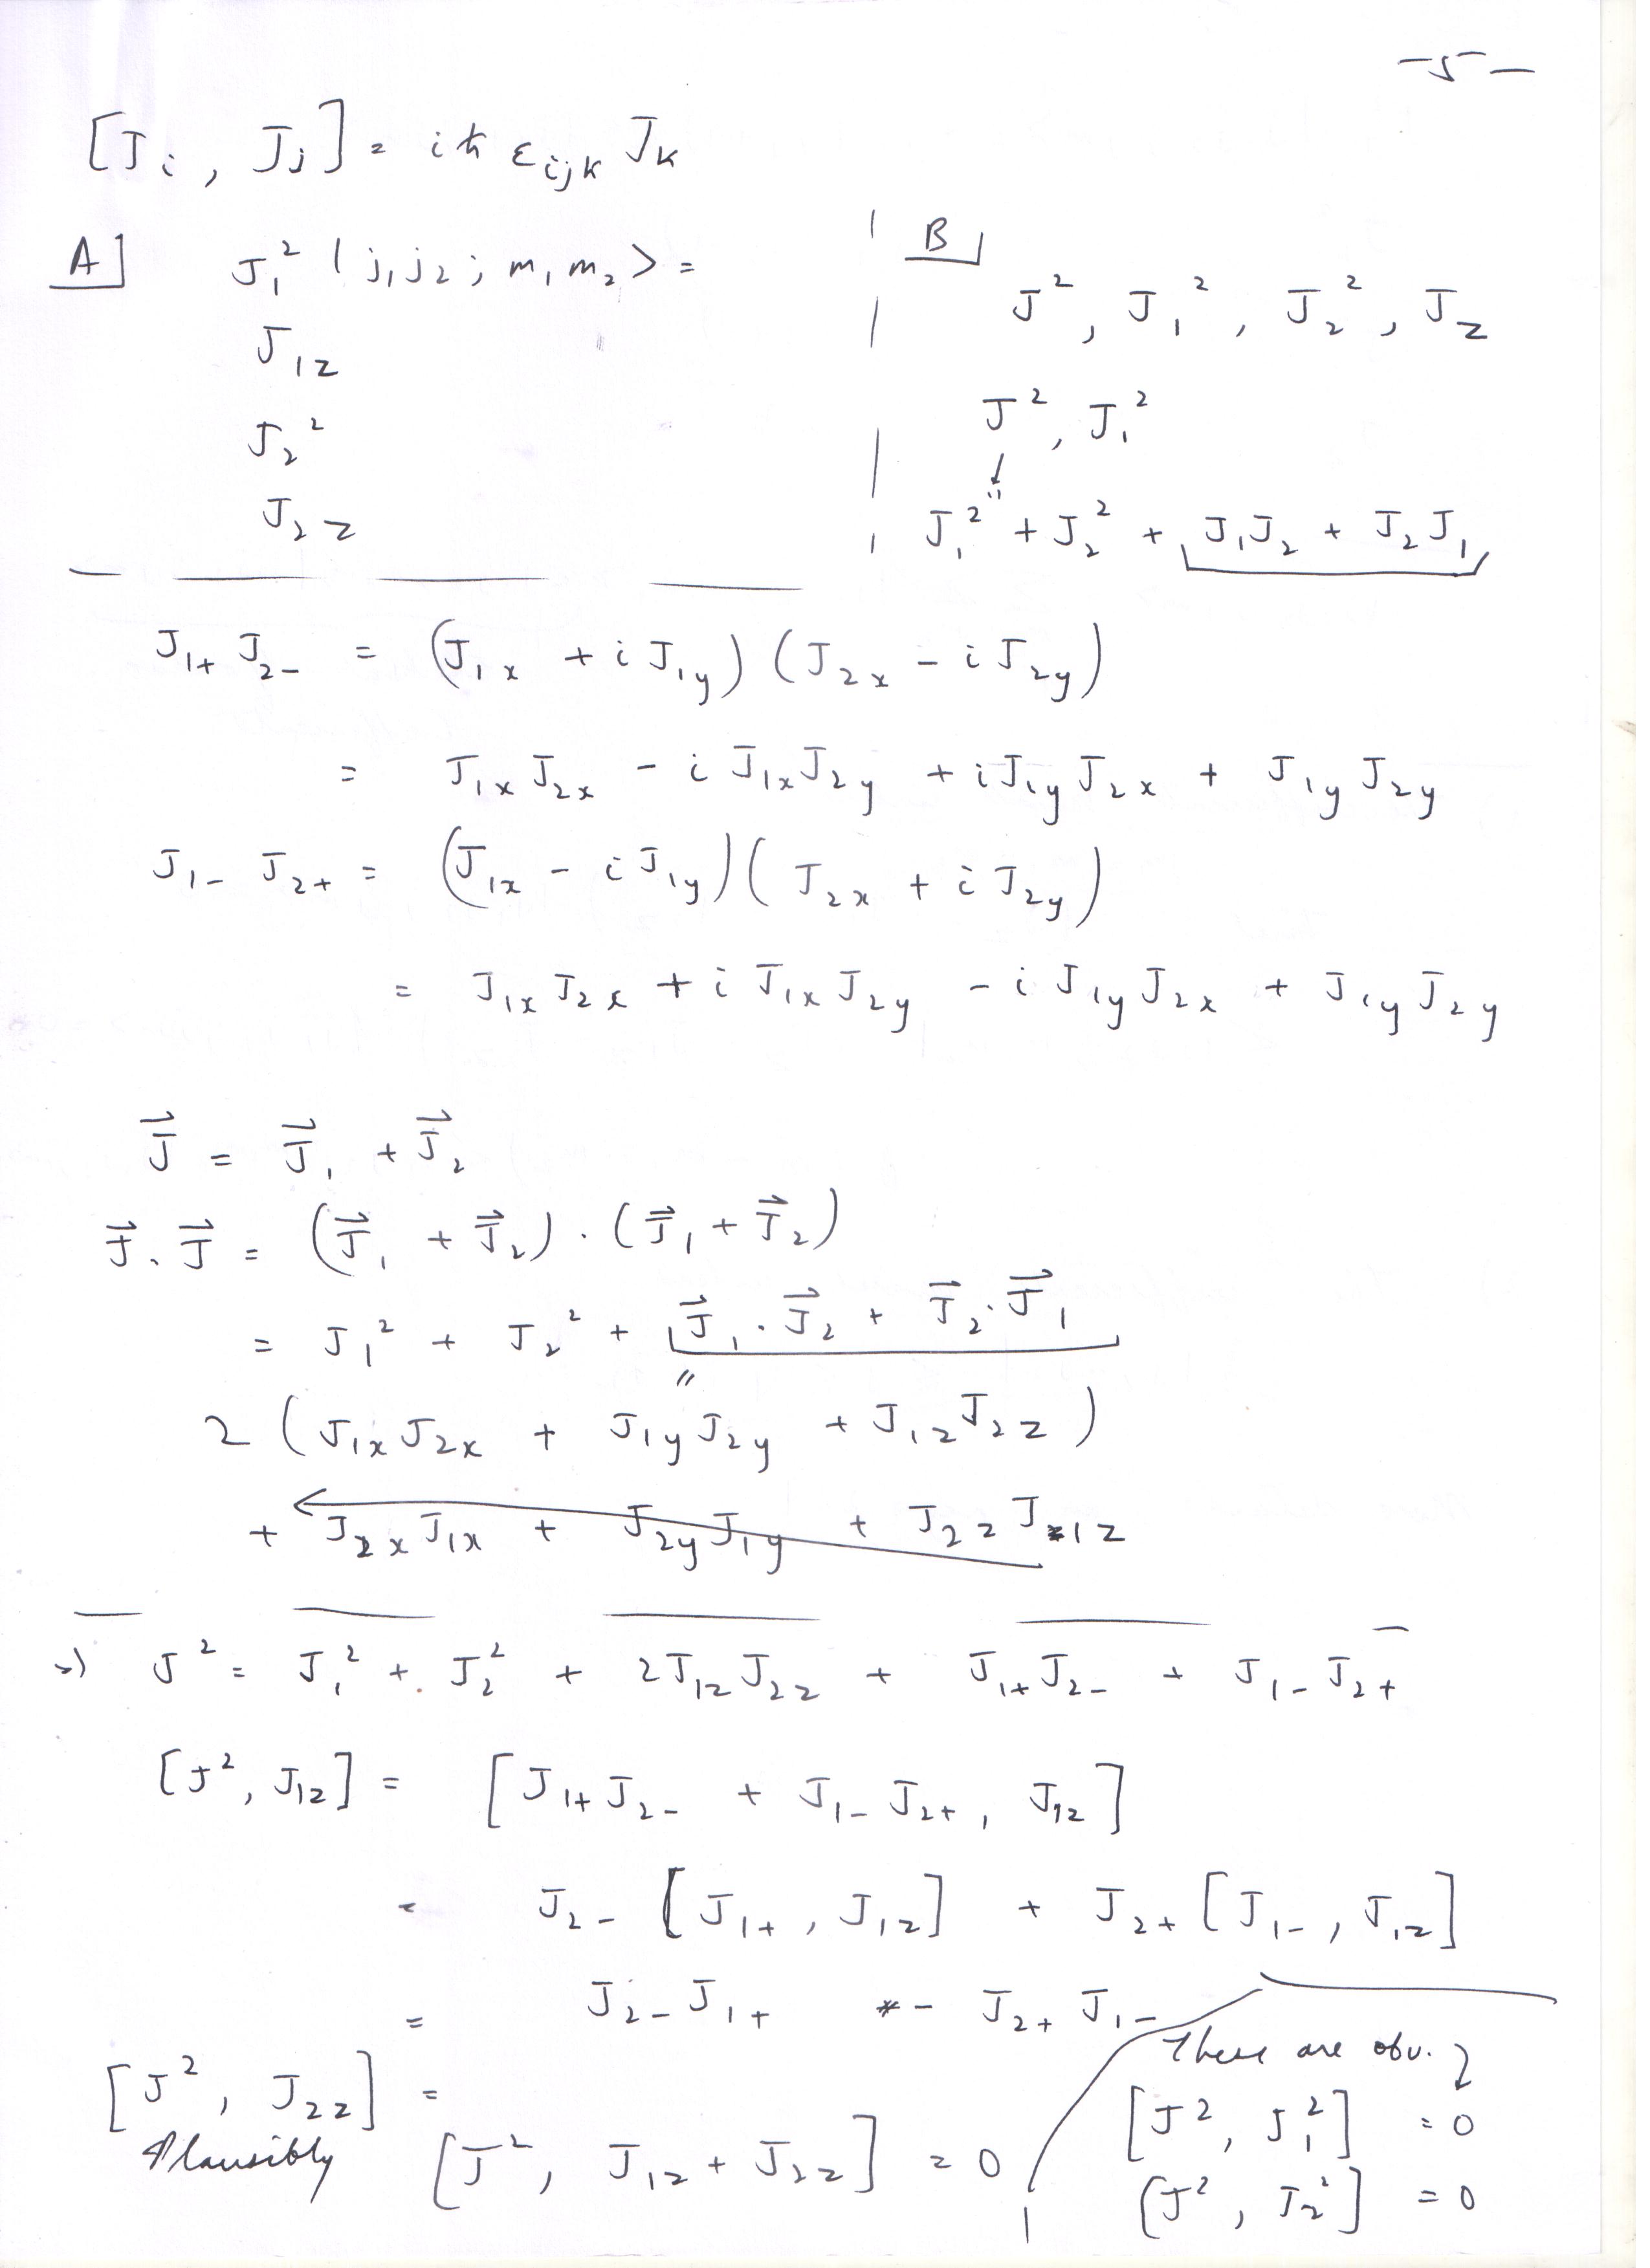 -5-
[J_i, J_j] = iħ ε_ijk J_k
A] J_1^2 | j_1 j_2 ; m_1 m_2 > =
J_1z
J_2^2
J_2z
B
J^2, J_1^2, J_2^2, J_z
J^2, J_1^2
J_1^2 + J_2^2 + J_1J_2 + J_2J_1
J_1+ J_2- = (J_1x + i J_1y) (J_2x - i J_2y)
= J_1x J_2x - i J_1x J_2y + i J_1y J_2x + J_1y J_2y
J_1- J_2+ = (J_1x - i J_1y) (J_2x + i J_2y)
= J_1x J_2x + i J_1x J_2y - i J_1y J_2x + J_1y J_2y
J⃗ = J⃗_1 + J⃗_2
J⃗ . J⃗ = (J⃗_1 + J⃗_2) . (J⃗_1 + J⃗_2)
= J_1^2 + J_2^2 + J⃗_1 . J⃗_2 + J⃗_2 . J⃗_1
"
2 (J_1x J_2x + J_1y J_2y + J_1z J_2z)
+ J_2x J_1x + J_2y J_1y + J_2z J_1z
=) J^2 = J_1^2 + J_2^2 + 2J_1z J_2z + J_1+ J_2- + J_1- J_2+
[J^2, J_1z] = [J_1+ J_2- + J_1- J_2+, J_1z]
= J_2- [J_1+, J_1z] + J_2+ [J_1-, J_1z]
= J_2- J_1+ - J_2+ J_1-
[J^2, J_2z] =
Plausibly [J^2, J_1z + J_2z] = 0
These are obv.
[J^2, J_1^2] = 0
[J^2, J_2^2] = 0